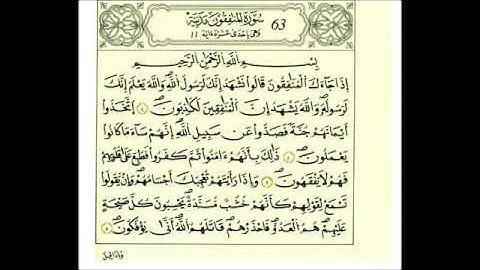 سُورَةُ الْمُنَافِقُونَ مَدَنِيَّة
63
وَهِيَ إِحْدَى عَشْرَةَ آيَة ١١
بِسْمِ اللَّهِ الرَّحْمَٰنِ الرَّحِيمِ
إِذَا جَاءَكَ الْمُنَافِقُونَ قَالُوا نَشْهَدُ إِنَّكَ لَرَسُولُ اللَّهِ وَاللَّهُ يَعْلَمُ إِنَّكَ
لَرَسُولُهُ وَاللَّهُ يَشْهَدُ إِنَّ الْمُنَافِقِينَ لَكَاذِبُونَ ١ اتَّخَذُوا
أَيْمَانَهُمْ جُنَّةً فَصَدُّوا عَن سَبِيلِ اللَّهِ إِنَّهُمْ سَاءَ مَا كَانُوا
يَعْمَلُونَ ٢ ذَٰلِكَ بِأَنَّهُمْ ءَامَنُوا ثُمَّ كَفَرُوا فَطُبِعَ عَلَىٰ قُلُوبِهِمْ
فَهُمْ لَا يَفْقَهُونَ ٣ وَإِذَا رَأَيْتَهُمْ تُعْجِبُكَ أَجْسَامُهُمْ وَإِن يَقُولُوا
تَسْمَعْ لِقَوْلِهِمْ كَأَنَّهُمْ خُشُبٌ مُّسَنَّدَةٌ يَحْسَبُونَ كُلَّ صَيْحَةٍ
عَلَيْهِمْ هُمُ الْعَدُوُّ فَاحْذَرْهُمْ قَاتَلَهُمُ اللَّهُ أَنَّىٰ يُؤْفَكُونَ ٤
وَإِذَا قِيلَ